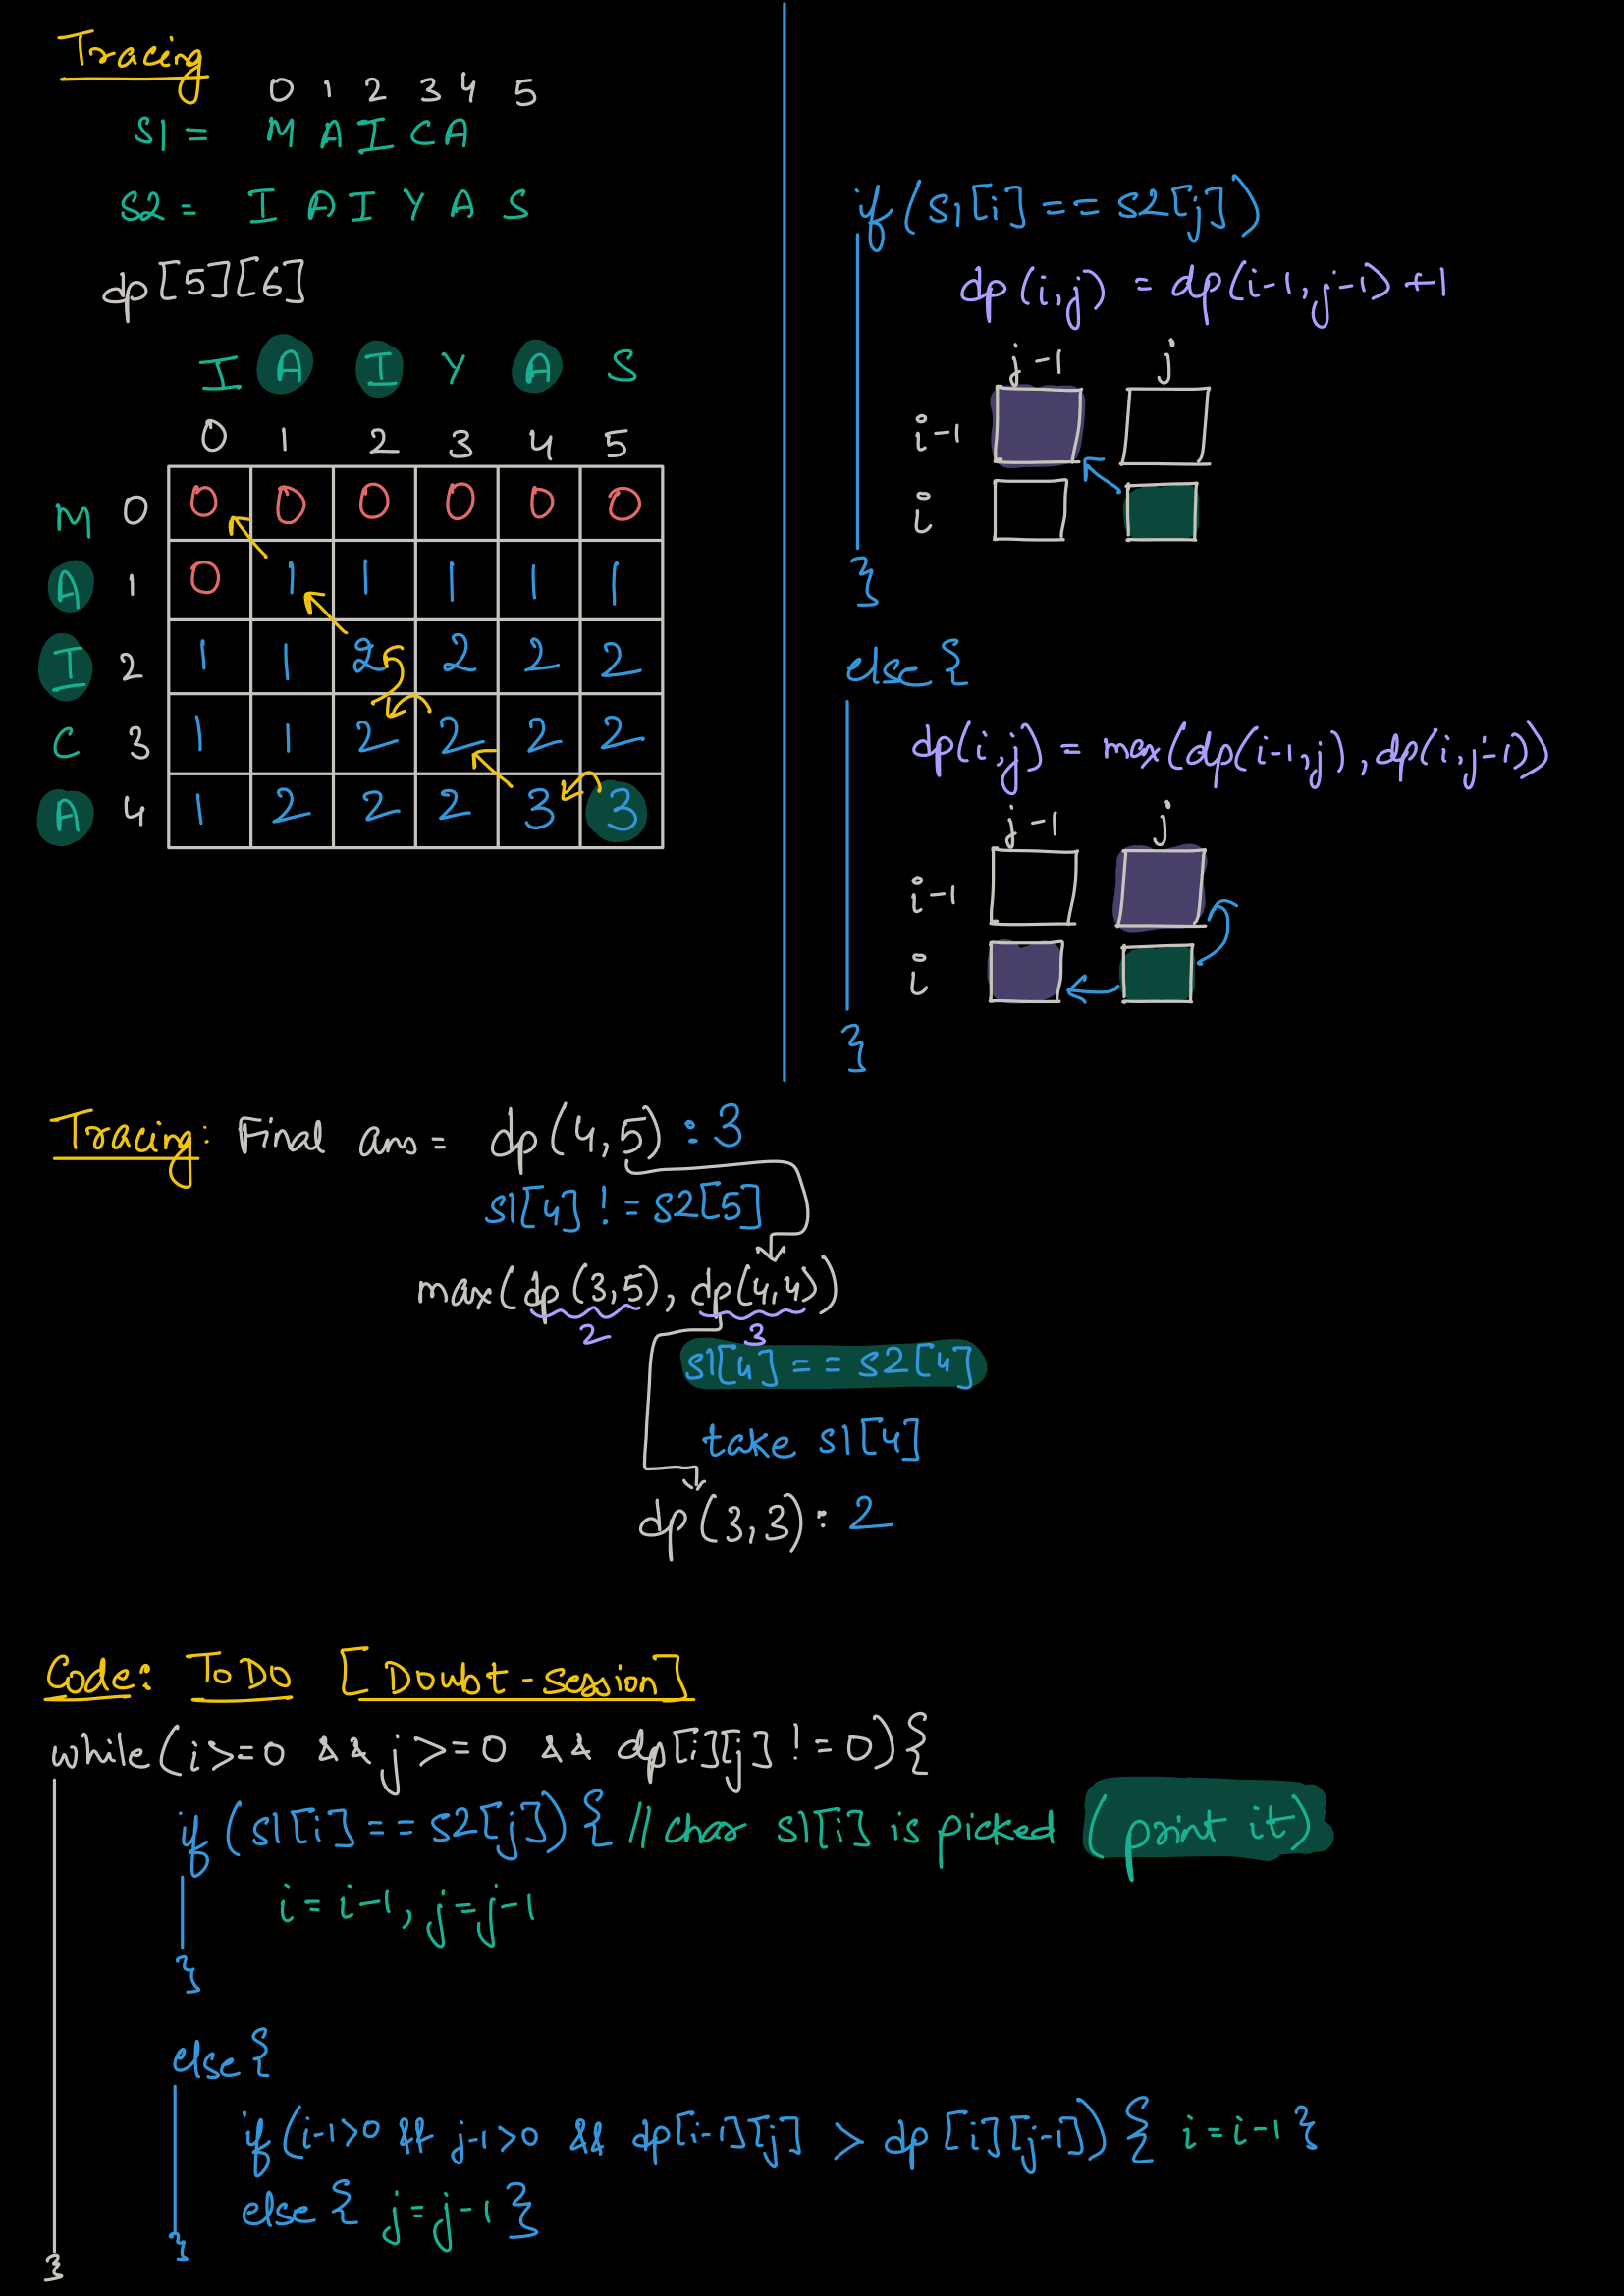 Tracing
0 1 2 3 4 5
S1 = M A I C A
S2 = I A I Y A S
dp[5][6]
I A I Y A S
0 1 2 3 4 5
M 0 0 0 0 0 0 0
A 1 0 1 1 1 1 1
I 2 1 1 2 2 2 2
C 3 1 1 2 2 2 2
A 4 1 2 2 2 3 3
if (s1[i] == s2[j])
dp(i,j) = dp(i-1,j-1) +1
j-1 j
i-1
i
}
else {
dp(i,j) = max(dp(i-1,j), dp(i,j-1))
j-1 j
i-1
i
}
Tracing: Final ans = dp(4,5) : 3
s1[4] != s2[5]
max(dp(3,5), dp(4,4))
2 3
s1[4] == s2[4]
take s1[4]
dp(3,3): 2
Code: ToDo [Doubt-session]
while (i>=0 && j>=0 && dp[i][j] != 0) {
if (s1[i] == s2[j]) { // char s1[i] is picked (print it)
i = i-1, j=j-1
}
else {
if (i-1>0 && j-1>0 && dp[i-1][j] > dp[i][j-1]) { i=i-1 }
else { j=j-1 }
}
}